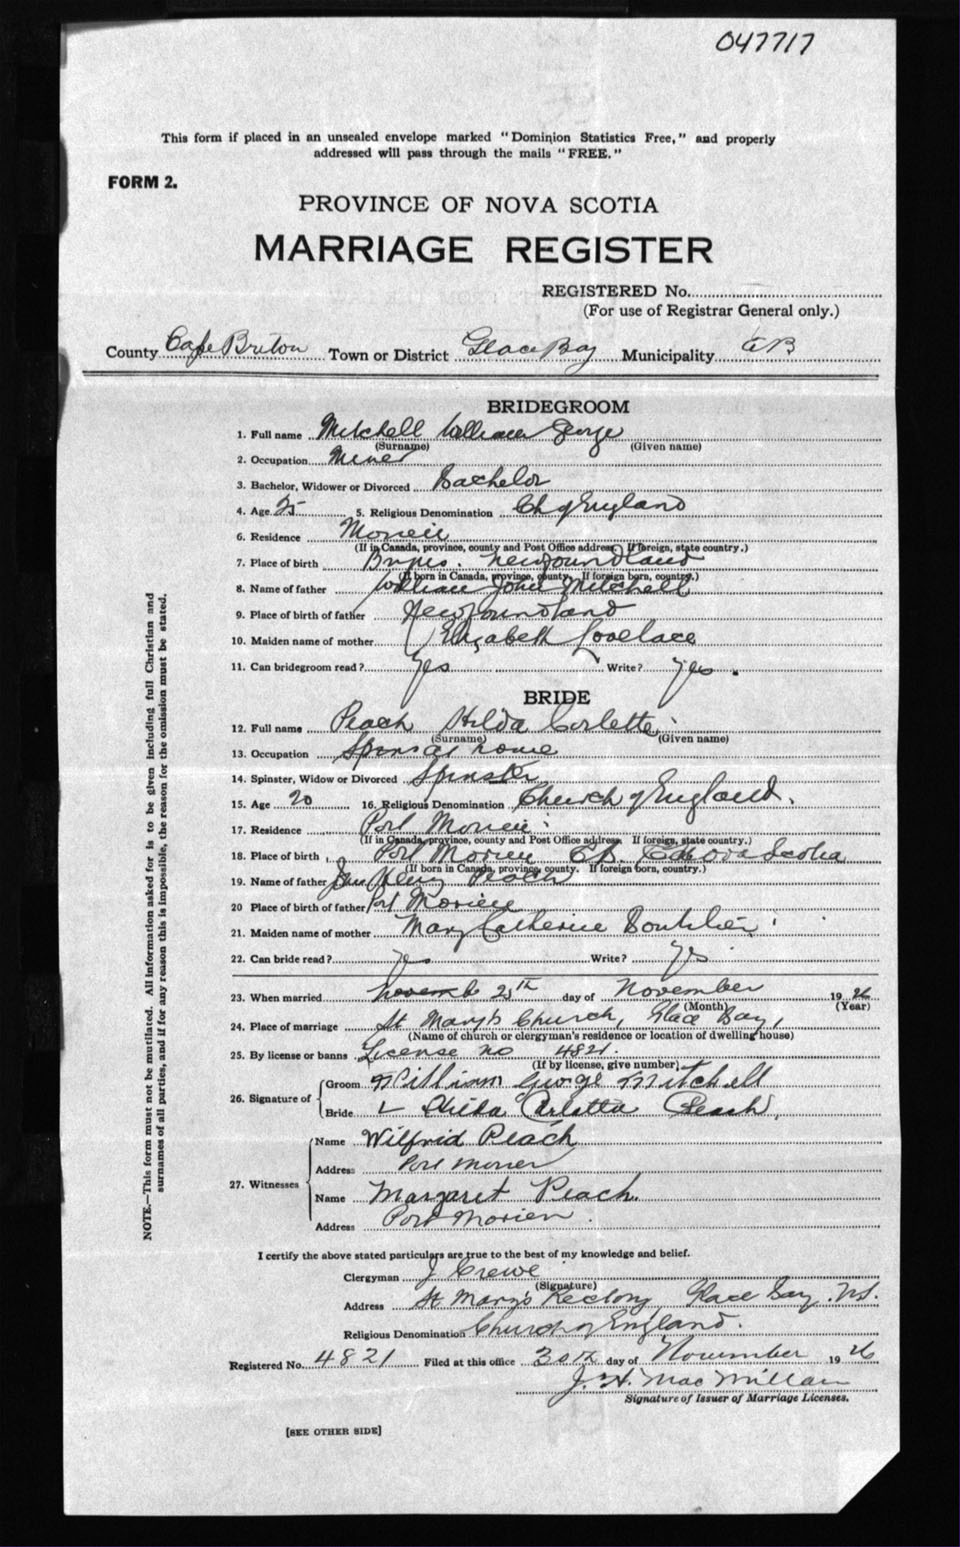 047717
This form if placed in an unsealed envelope marked "Dominion Statistics Free," and properly
addressed will pass through the mails "FREE."
FORM 2.
PROVINCE OF NOVA SCOTIA
MARRIAGE REGISTER
REGISTERED No.
(For use of Registrar General only.)
County Cape Breton Town or District Glace Bay Municipality CB
BRIDEGROOM
1. Full name Mitchell William George
(Surname) (Given name)
2. Occupation Miner
3. Bachelor, Widower or Divorced Bachelor
4. Age 25 5. Religious Denomination Ch of England
6. Residence Morien
(If in Canada, province, county and Post Office address. If foreign, state country.)
7. Place of birth Newfoundland
(If born in Canada, province, county. If foreign born, country.)
8. Name of father William John Mitchell
9. Place of birth of father Newfoundland
10. Maiden name of mother Elizabeth Lovelace
11. Can bridegroom read? Yes Write? Yes.
BRIDE
12. Full name Peach Hilda Corlette
(Surname) (Given name)
13. Occupation at home
14. Spinster, Widow or Divorced Spinster
15. Age 20 16. Religious Denomination Church of England.
17. Residence Port Morien
(If in Canada, province, county and Post Office address. If foreign, state country.)
18. Place of birth Port Morien CB. Nova Scotia
(If born in Canada, province, county. If foreign born, country.)
19. Name of father Henry Peach
20 Place of birth of father Port Morien
21. Maiden name of mother Mary Catherine Boutilier
22. Can bride read? Yes Write? Yes
23. When married 25th day of November 1926
(Month) (Year)
24. Place of marriage St Mary's Church, Glace Bay,
(Name of church or clergyman's residence or location of dwelling house)
25. By license or banns License no 4821.
(If by license, give number)
26. Signature of Groom William George Mitchell
Bride Hilda Carlotta Peach
27. Witnesses
Name Wilfrid Peach
Address Port Morien
Name Margaret Peach.
Address Port Morien.
I certify the above stated particulars are true to the best of my knowledge and belief.
Clergyman J Crewe
(Signature)
Address St Mary's Rectory Glace Bay. N.S.
Religious Denomination Church of England.
Registered No. 4821 Filed at this office 30th day of November 1926
J. H. MacMillan
Signature of Issuer of Marriage Licenses.
[SEE OTHER SIDE]
NOTE.—This form must not be mutilated. All information asked for is to be given including full Christian and
surnames of all parties, and if for any reason this is impossible, the reason for the omission must be stated.